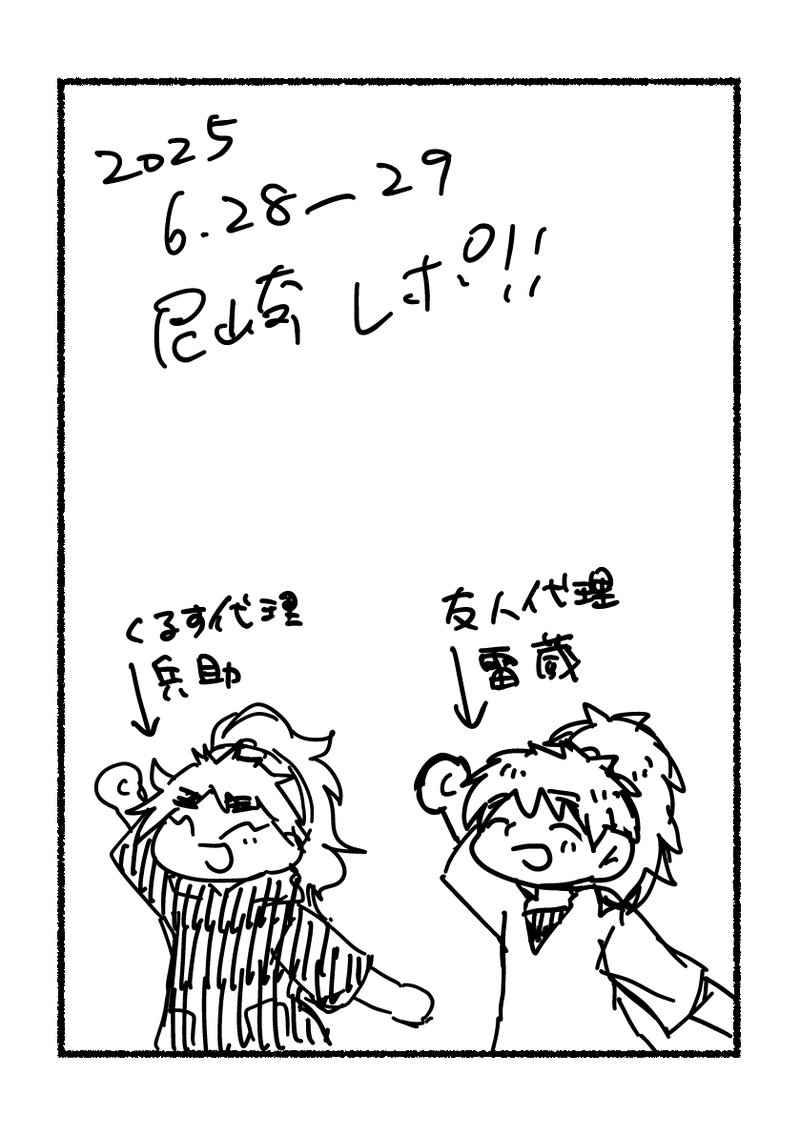 2025
6.28ー29
尼崎 レポ!!
くるす代理
兵助
友人代理
雷蔵